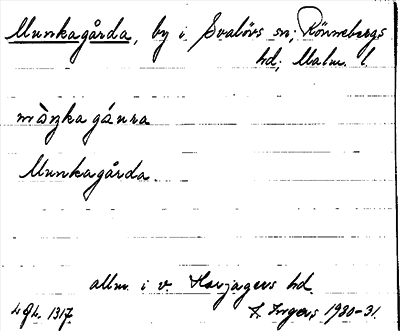 Munkagårda, by i Svalövs sn; Rönnebergs
hd; Malm. l.
mùŋkagáura
Munkagårda.
allm. i v. Harjagers hd.
L. Ingers, 1930-31.